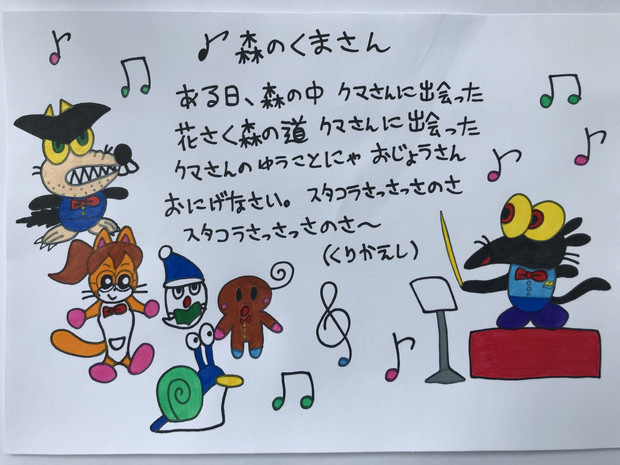 ♪森のくまさん
ある日、森の中 クマさんに出会った
花さく森の道 クマさんに出会った
クマさんのゆうことにゃ おじょうさん
おにげなさい。スタコラさっさっさのさ
スタコラさっさっさのさ〜
(くりかえし)